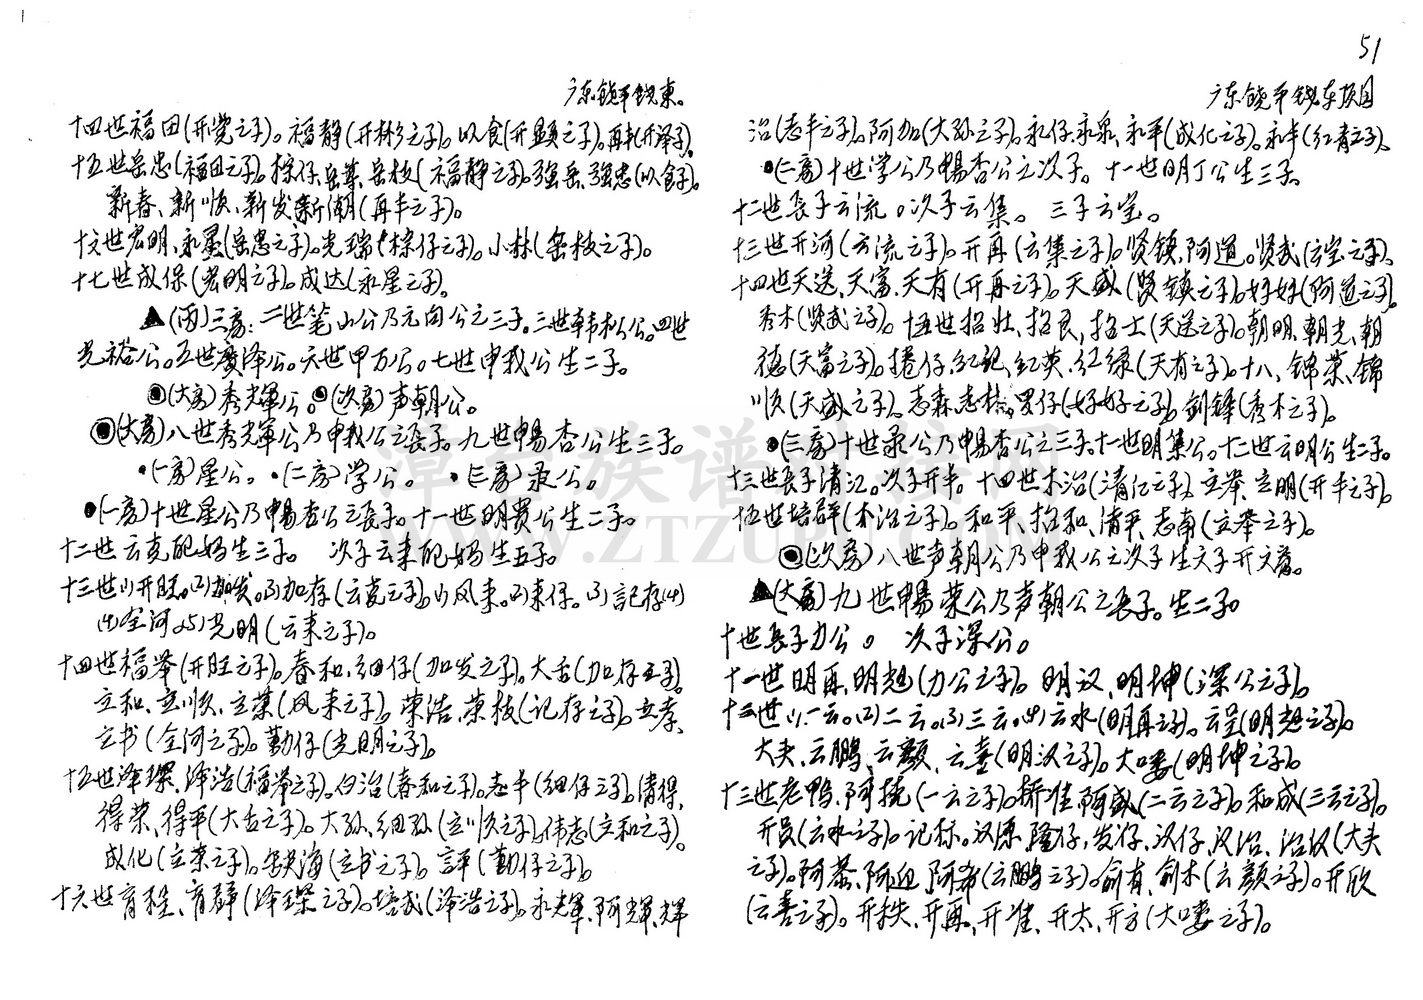 51
广东饶平饶东。
十四世福田(开党之子)。福静(开彬之子)。以食(开显之子)。再丰(开泽子)。
十五世岳忠(福田之子)。棕仔、岳基、岳枝(福静之子)。强岳、强忠(以食子)。
新春、新顺、新发、新潮(再丰之子)。
十六世宏明、永星(岳忠之子)。光瑞(棕仔之子)。小林(岳枝之子)。
十七世成保(宏明之子)。成达(永星之子)。
▲(两)三房:二世笔山公乃元向公之三子。三世韩松公。四世
光裕公。五世广泽公。六世甲万公。七世申我公生二子。
◉(大房)秀辉公。◉(次房)声朝公。
◉(大房)八世秀辉公乃申我公之长子。九世畅杏公生三子。
•(一房)星公。•(二房)学公。•(三房)录公。
●(一房)十世星公乃畅杏公之长子。十一世明贵公生二子。
十二世云克配妈生三子。 次子云来配妈生五子。
十三世(1)开旺。(2)加发。(3)加存(云克之子)。(1)风来。(2)来仔。(3)記存(4)
(4)全河。(5)光明(云来之子)。
十四世福举(开旺之子)。春和、细仔(加发之子)。大舌(加存之子)。
立和、立顺、立荣(风来之子)。荣浩、荣枝(记存之子)。立孝、
立书(全河之子)。勤仔(光明之子)。
十五世泽琛、泽浩(福举之子)。白治(春和之子)。志丰(细仔之子)。清得、
得荣、得平(大舌之子)。大孙、细孙(立顺之子)。伟志(立和之子)。
成化(立荣之子)。海(立书之子)。評(勤仔之子)。
十六世育程、育静(泽琛之子)。培成(泽浩之子)。永辉、阿辉、辉
广东饶平饶东顶园
治(志丰之子)。阿加(大孙之子)。永仔、永泉、永平(成化之子)。永丰(红青之子)。
●(二房)十世学公乃畅杏公之次子。十一世明丁公生三子。
十二世长子云流。次子云集。三子云宝。
十三世开河(云流之子)。开再(云集之子)。贤镇、阿道。贤武(云宝之子)。
十四世天送、天富、天有(开再之子)。天盛(贤镇之子)。好好(阿道之子)。
秀木(贤武之子)。十五世招壮、招良、招士(天送之子)。朝明、朝光、朝
德(天富之子)。捲仔、红记、红英、红绿(天有之子)。十八、锦荣、锦
顺(天盛之子)。志森、志松、罗仔(好好之子)。剑锋(秀木之子)。
●(三房)十世录公乃畅杏公之三子。十一世明集公。十二世云明公生二子。
十三世长子清江。次子开丰。十四世木治(清江之子)。立举、立明(开丰之子)。
十五世培群(木治之子)。和平、招和、清平、志南(立举之子)。
◉(次房)八世声朝公乃申我公之次子生六子开六房。
▲(大房)九世畅荣公乃声朝公之长子。生二子。
十世长子力公。 次子深公。
十一世明再、明想(力公之子)。明汉、明坤(深公之子)。
十二世(1)一云。(2)二云。(3)三云。(4)云水(明再之子)。云呈(明想之子)。
大夫、云鹏、云颜、云喜(明汉之子)。大喽(明坤之子)。
十三世老鸭、阿挽(一云之子)。桥准、阿盛(二云之子)。和成(三云之子)。
开员(云水之子)。记标、汉源、隆仔、发仔、汉仔、汉治、治汉(大夫
之子)。阿恭、阿迎、阿希(云鹏之子)。俞有、俞木(云颜之子)。开欣
(云喜之子)。开秩、开再、开准、开太、开方(大喽之子)。
漳台族谱对接网
WWW.ZTZUPU.COM